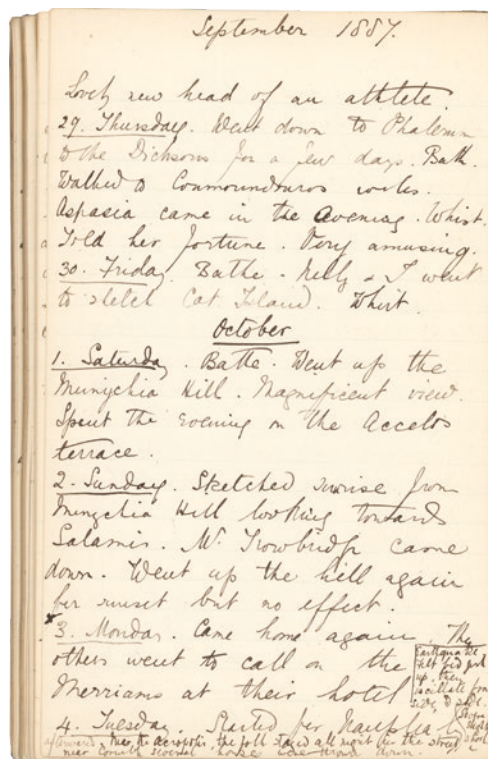 September 1887.
Lovely new head of an athlete.
29. Thursday. Went down to Phalerum
to the Dicksons for a few days. Bath.
Walked to Coumoundouros
Aspasia came in the evening. Whist.
Told her fortune. Very amusing.
30. Friday. Bathe. Nelly & I went
to sketch Cat Island. Whist.
October
1. Saturday. Bathe. Went up the
Munychia Hill. Magnificent view.
Spent the evening on the
terrace.
2. Sunday. Sketched sunrise from
Munychia Hill looking towards
Salamis. Mr Trowbridge came
down. Went up the hill again
for sunset but no effect.
x 3. Monday. Came home again. The
others went to call on the
Merriams at their hotel
Earthquake
felt bid
up. then
oscillate from
side to side.
short
4. Tuesday. Started for Nauplia.
afterwards. Near the Acropolis, the folk stayed all night in the street,
near Corinth several houses were thrown down.